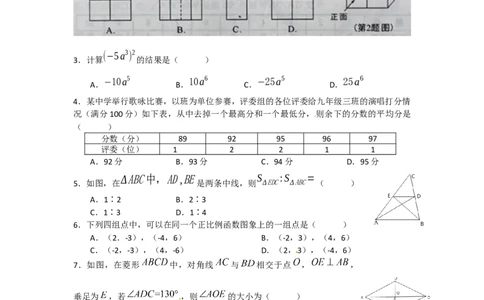 正面
A. B. C. D. (第2题图)
3．计算(−5a³)²的结果是（ ）
A．−10a⁵ B．10a⁶ C．−25a⁵ D．25a⁶
4．某中学举行歌咏比赛，以班为单位参赛，评委组的各位评委给九年级三班的演唱打分情
况（满分100分）如下表，从中去掉一个最高分和一个最低分，则余下的分数的平均分是
（ ）
分数（分） 89 92 95 96 97
评委（位） 1 2 2 1 1
A．92分 B．93分 C．94分 D．95分
5．如图，在ΔABC中，AD,BE是两条中线，则S△EDC:S△ABC=（ ）
A．1∶2 B．2∶3
C．1∶3 D．1∶4
C
E D
A B
6．下列四组点中，可以在同一个正比例函数图象上的一组点是（ ）
A．（2．-3），（-4，6） B．（-2，3），（4，6）
C．（-2，-3），（4，-6） D．（2，3），（-4，6）
7．如图，在菱形ABCD中，对角线AC与BD相交于点O，OE⊥AB，
垂足为E，若∠ADC=130°，则∠AOE的大小为（ ）